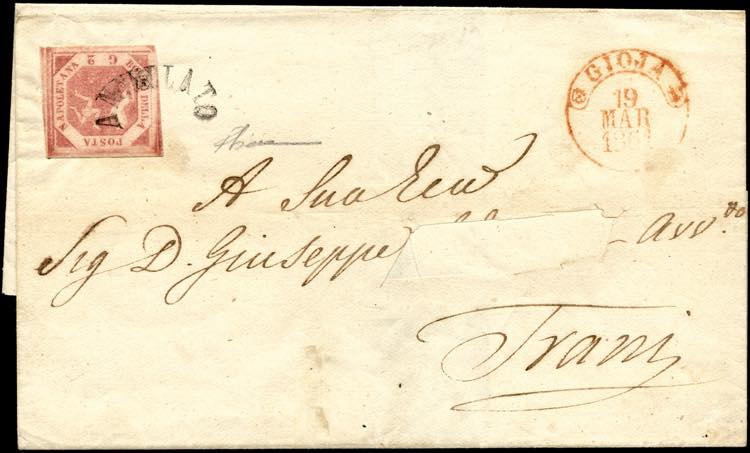 BOLLO DELLA POSTA NAPOLETANA
G 2
ANNULLATO
GIOJA
19
MAR
A Sua Ecc
Sig D. Giuseppe
Avv.to
Trani